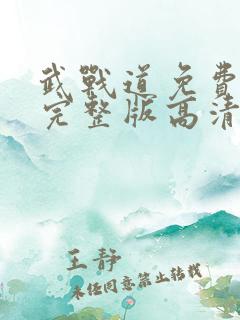 武戰道免費
完整版高清
王静
未经同意禁止转载